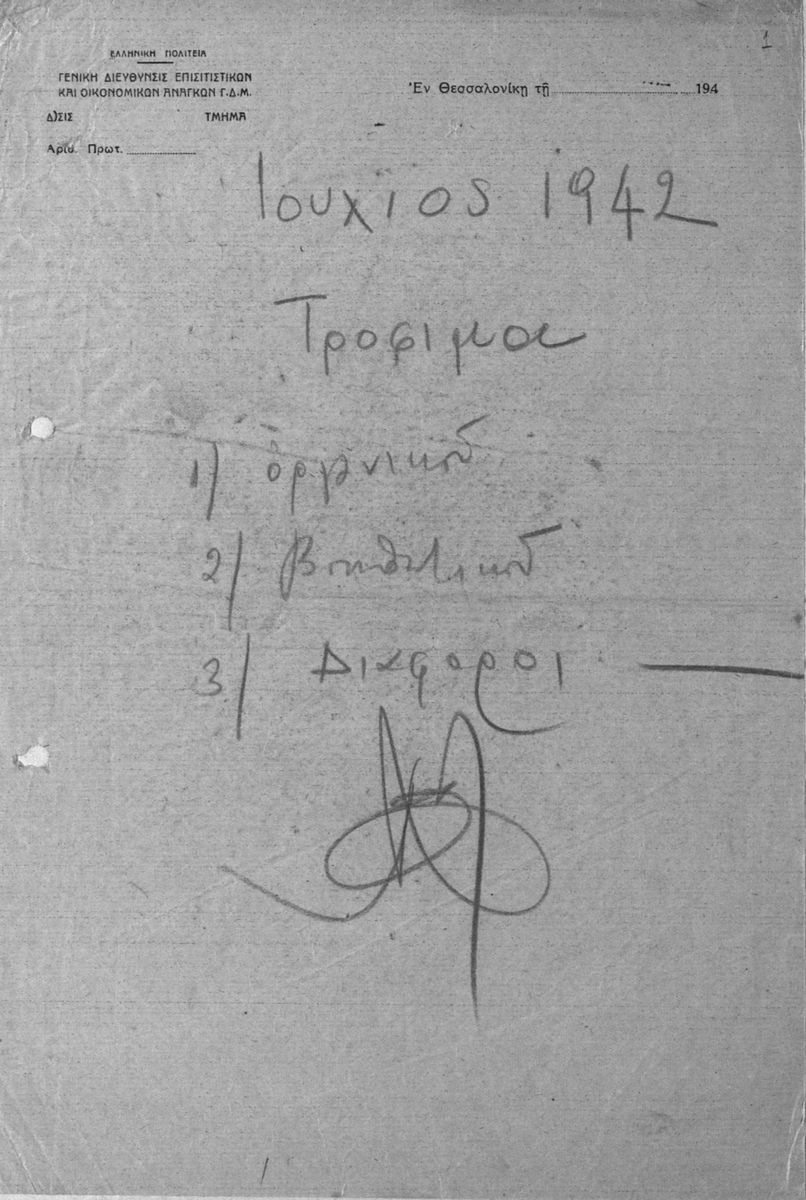 1
ΕΛΛΗΝΙΚΗ ΠΟΛΙΤΕΙΑ
ΓΕΝΙΚΗ ΔΙΕΥΘΥΝΣΙΣ ΕΠΙΣΙΤΙΣΤΙΚΩΝ
ΚΑΙ ΟΙΚΟΝΟΜΙΚΩΝ ΑΝΑΓΚΩΝ Γ.Δ.Μ.
Δ)ΣΙΣ ΤΜΗΜΑ
Ἀριθ. Πρωτ.
Ἐν Θεσσαλονίκῃ τῇ 194
Ιουλιος 1942
Τροφιμα
1) ὀργανικοῦ
2) βοηθητικοῦ
3) Διαφοροι